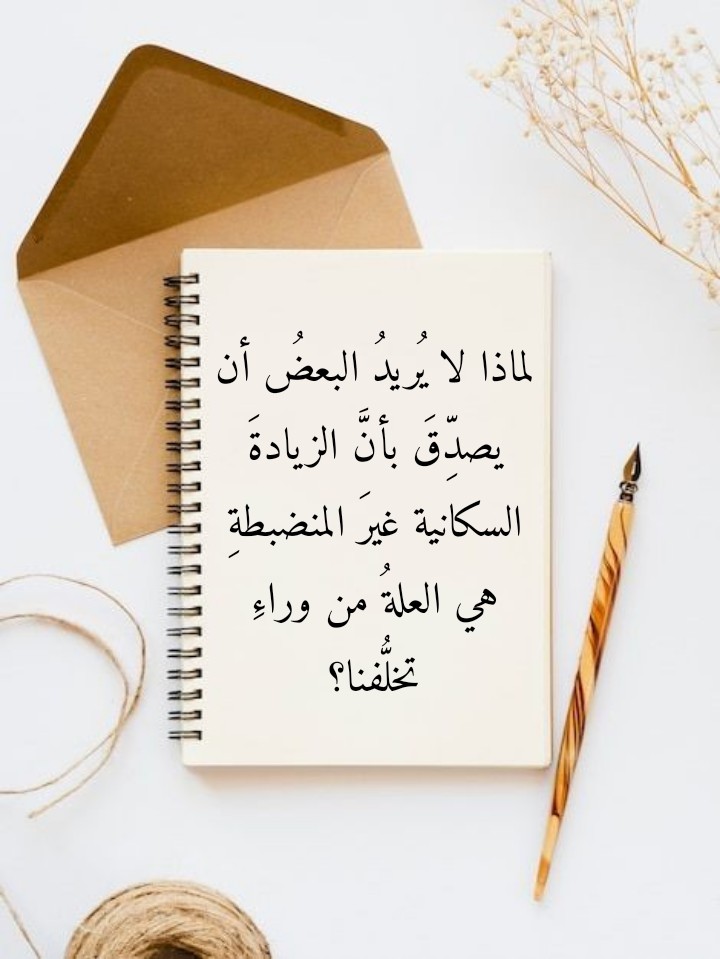 لماذا لا يُريدُ البعضُ أن
يصدِّقَ بأنَّ الزيادةَ
السكانية غيرَ المنضبطةِ
هي العلةُ من وراءِ
تخلُّفنا؟